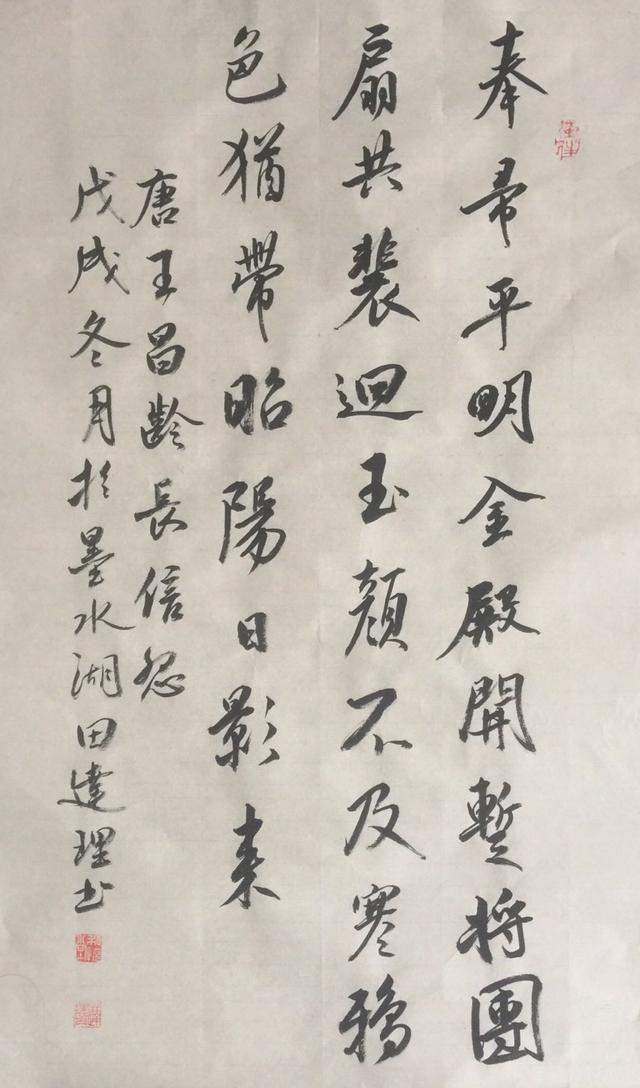 奉帚平明金殿開暫将團
扇共裴迴玉顏不及寒鴉
色猶帶昭陽日影来
唐王昌齡長信怨
戊戌冬月於墨水湖田達理书